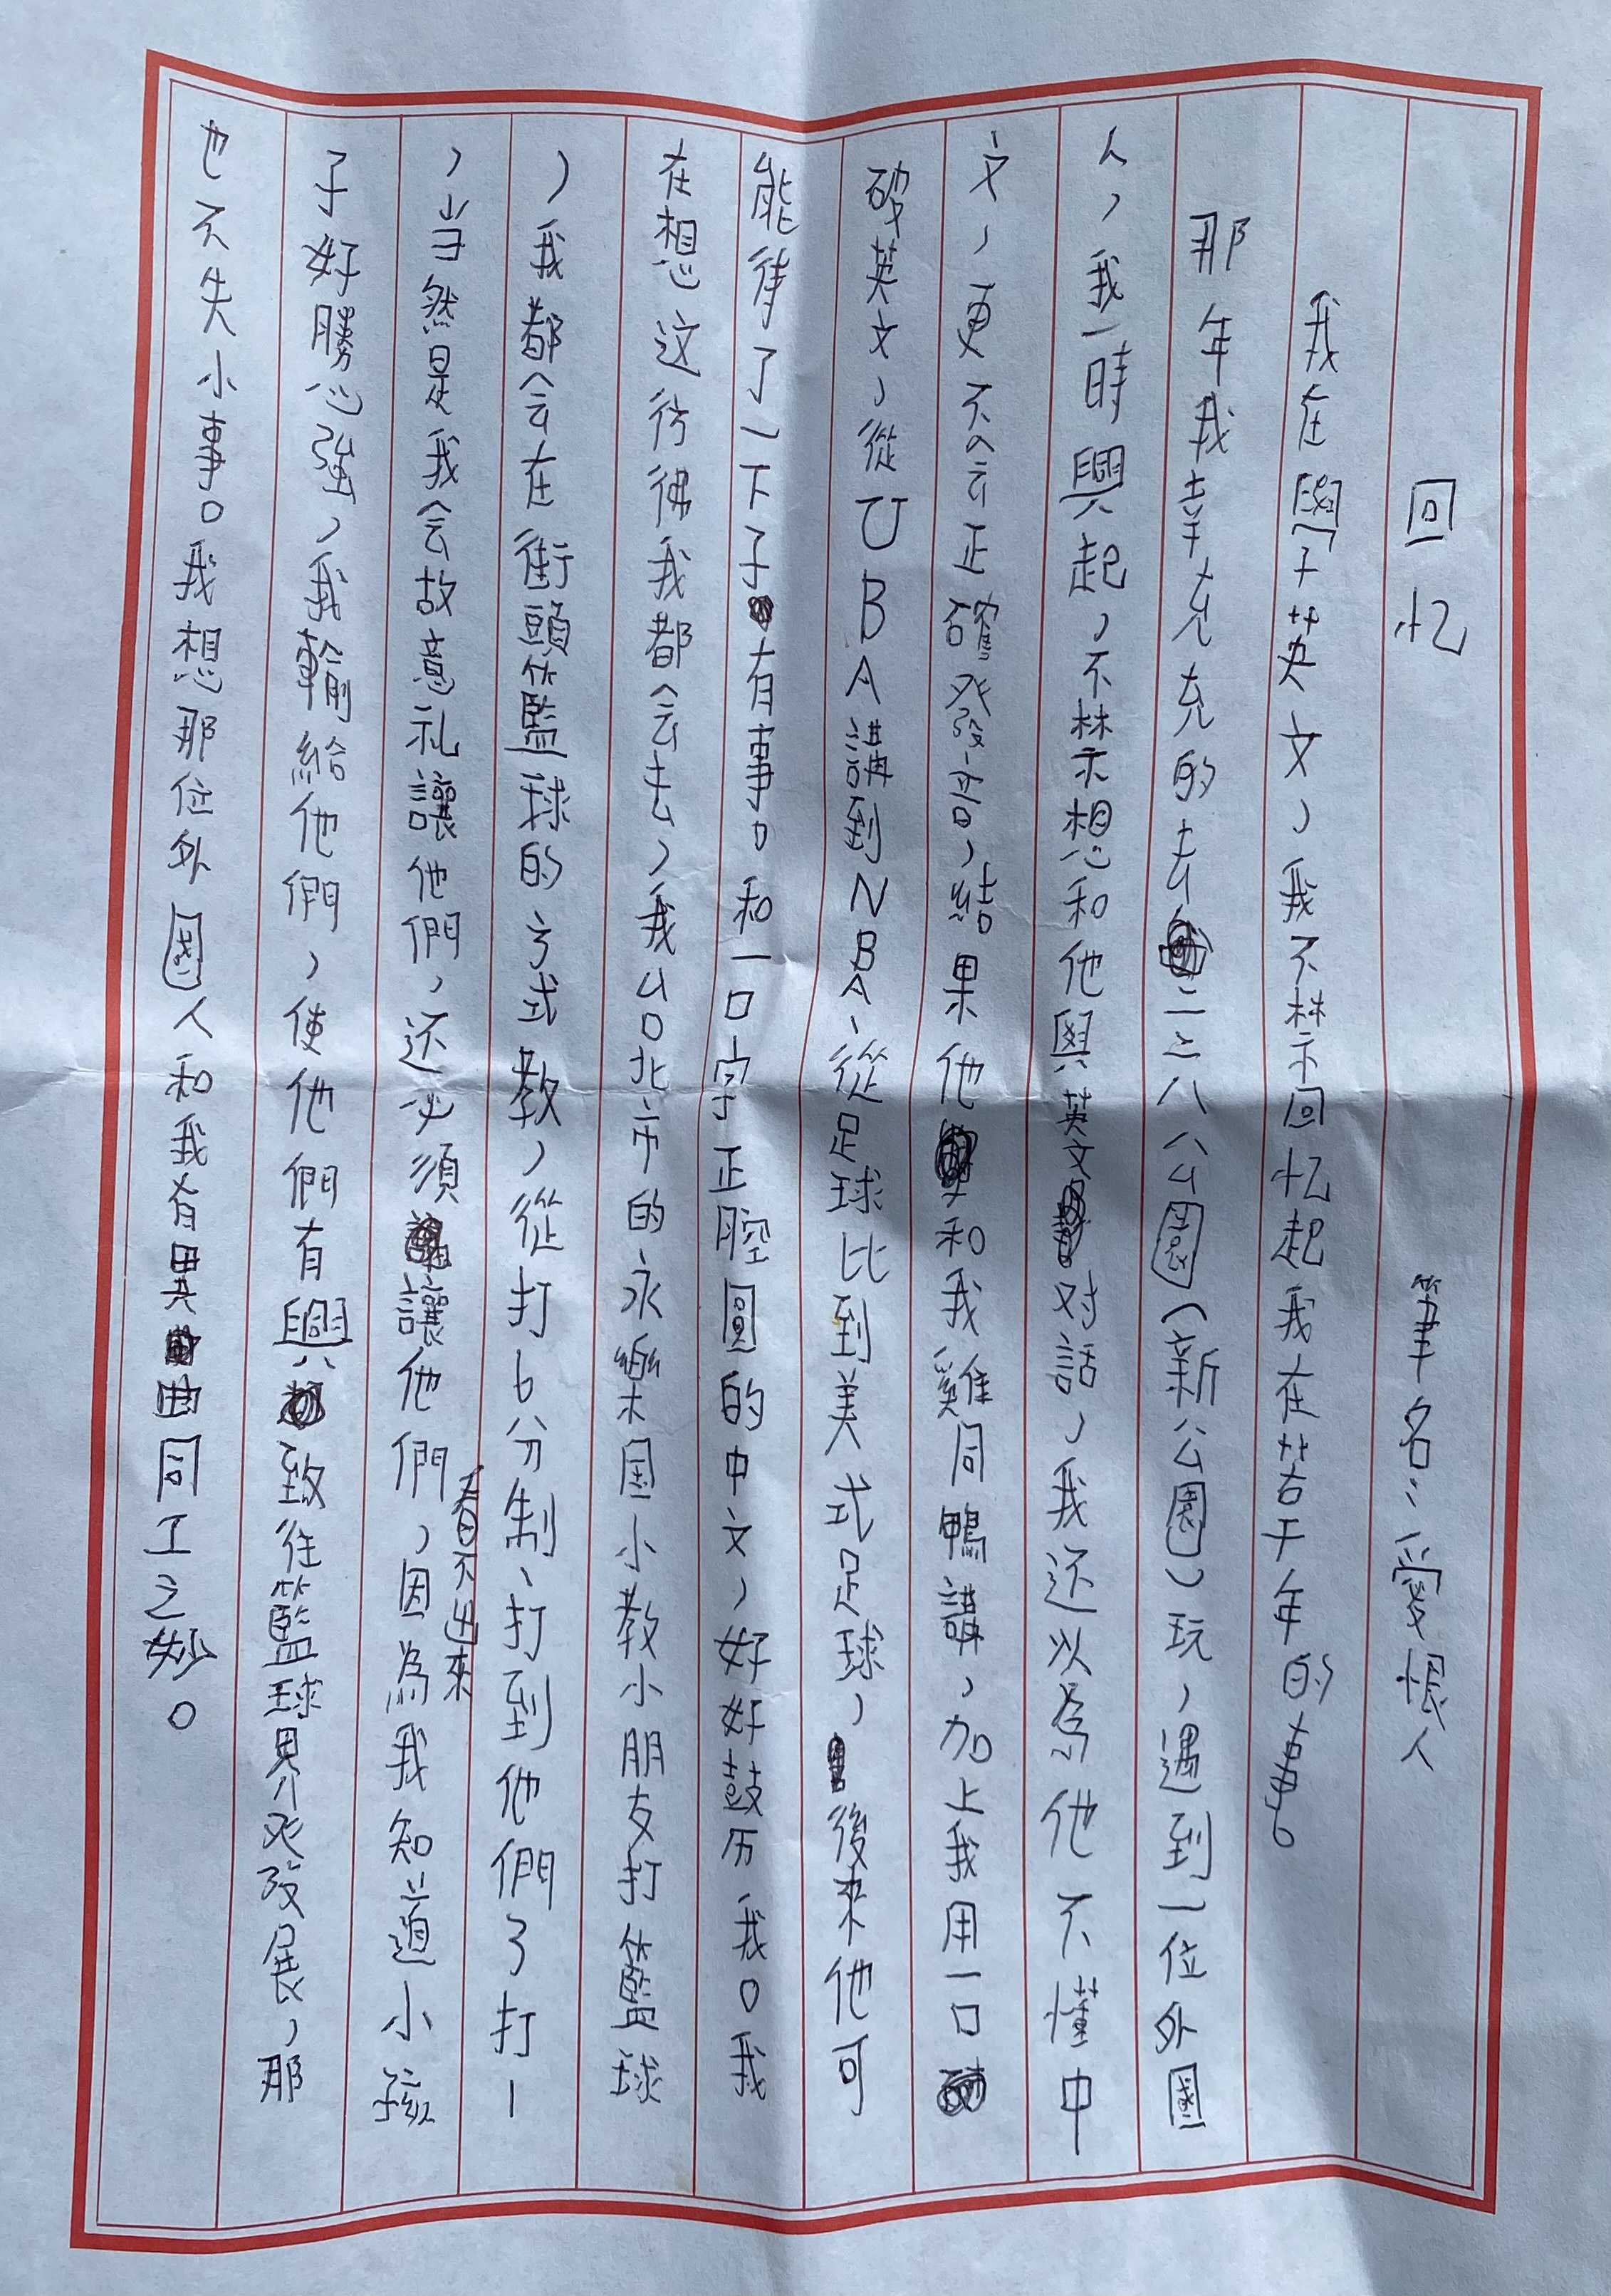 回忆　筆名：愛恨人
我在學英文，我不禁回忆起我在若干年的事。
那年我幸充充的去二二八公園（新公園）玩，遇到一位外國
人，我一時興起，不禁想和他與英文对話，我还以為他不懂中
文，更不会正確發音，結果他和我雞同鴨講，加上我用一口
破英文，從UBA講到NBA、從足球比到美式足球，後來他可
能待了一下子有事。和一口字正腔圓的中文，好好鼓历我。我
在想这彷彿我都会去，我台北市的永樂国小教小朋友打籃球
，我都会在街頭籃球的方式教，從打6分制、打到他們了打1
，当然是我会故意礼讓他們，还必須讓他們看不出來，因為我知道小孩
子好勝心強，我輸給他們，使他們有興致往籃球界發展，那
也不失小事。我想那位外國人和我有異曲同工之妙。